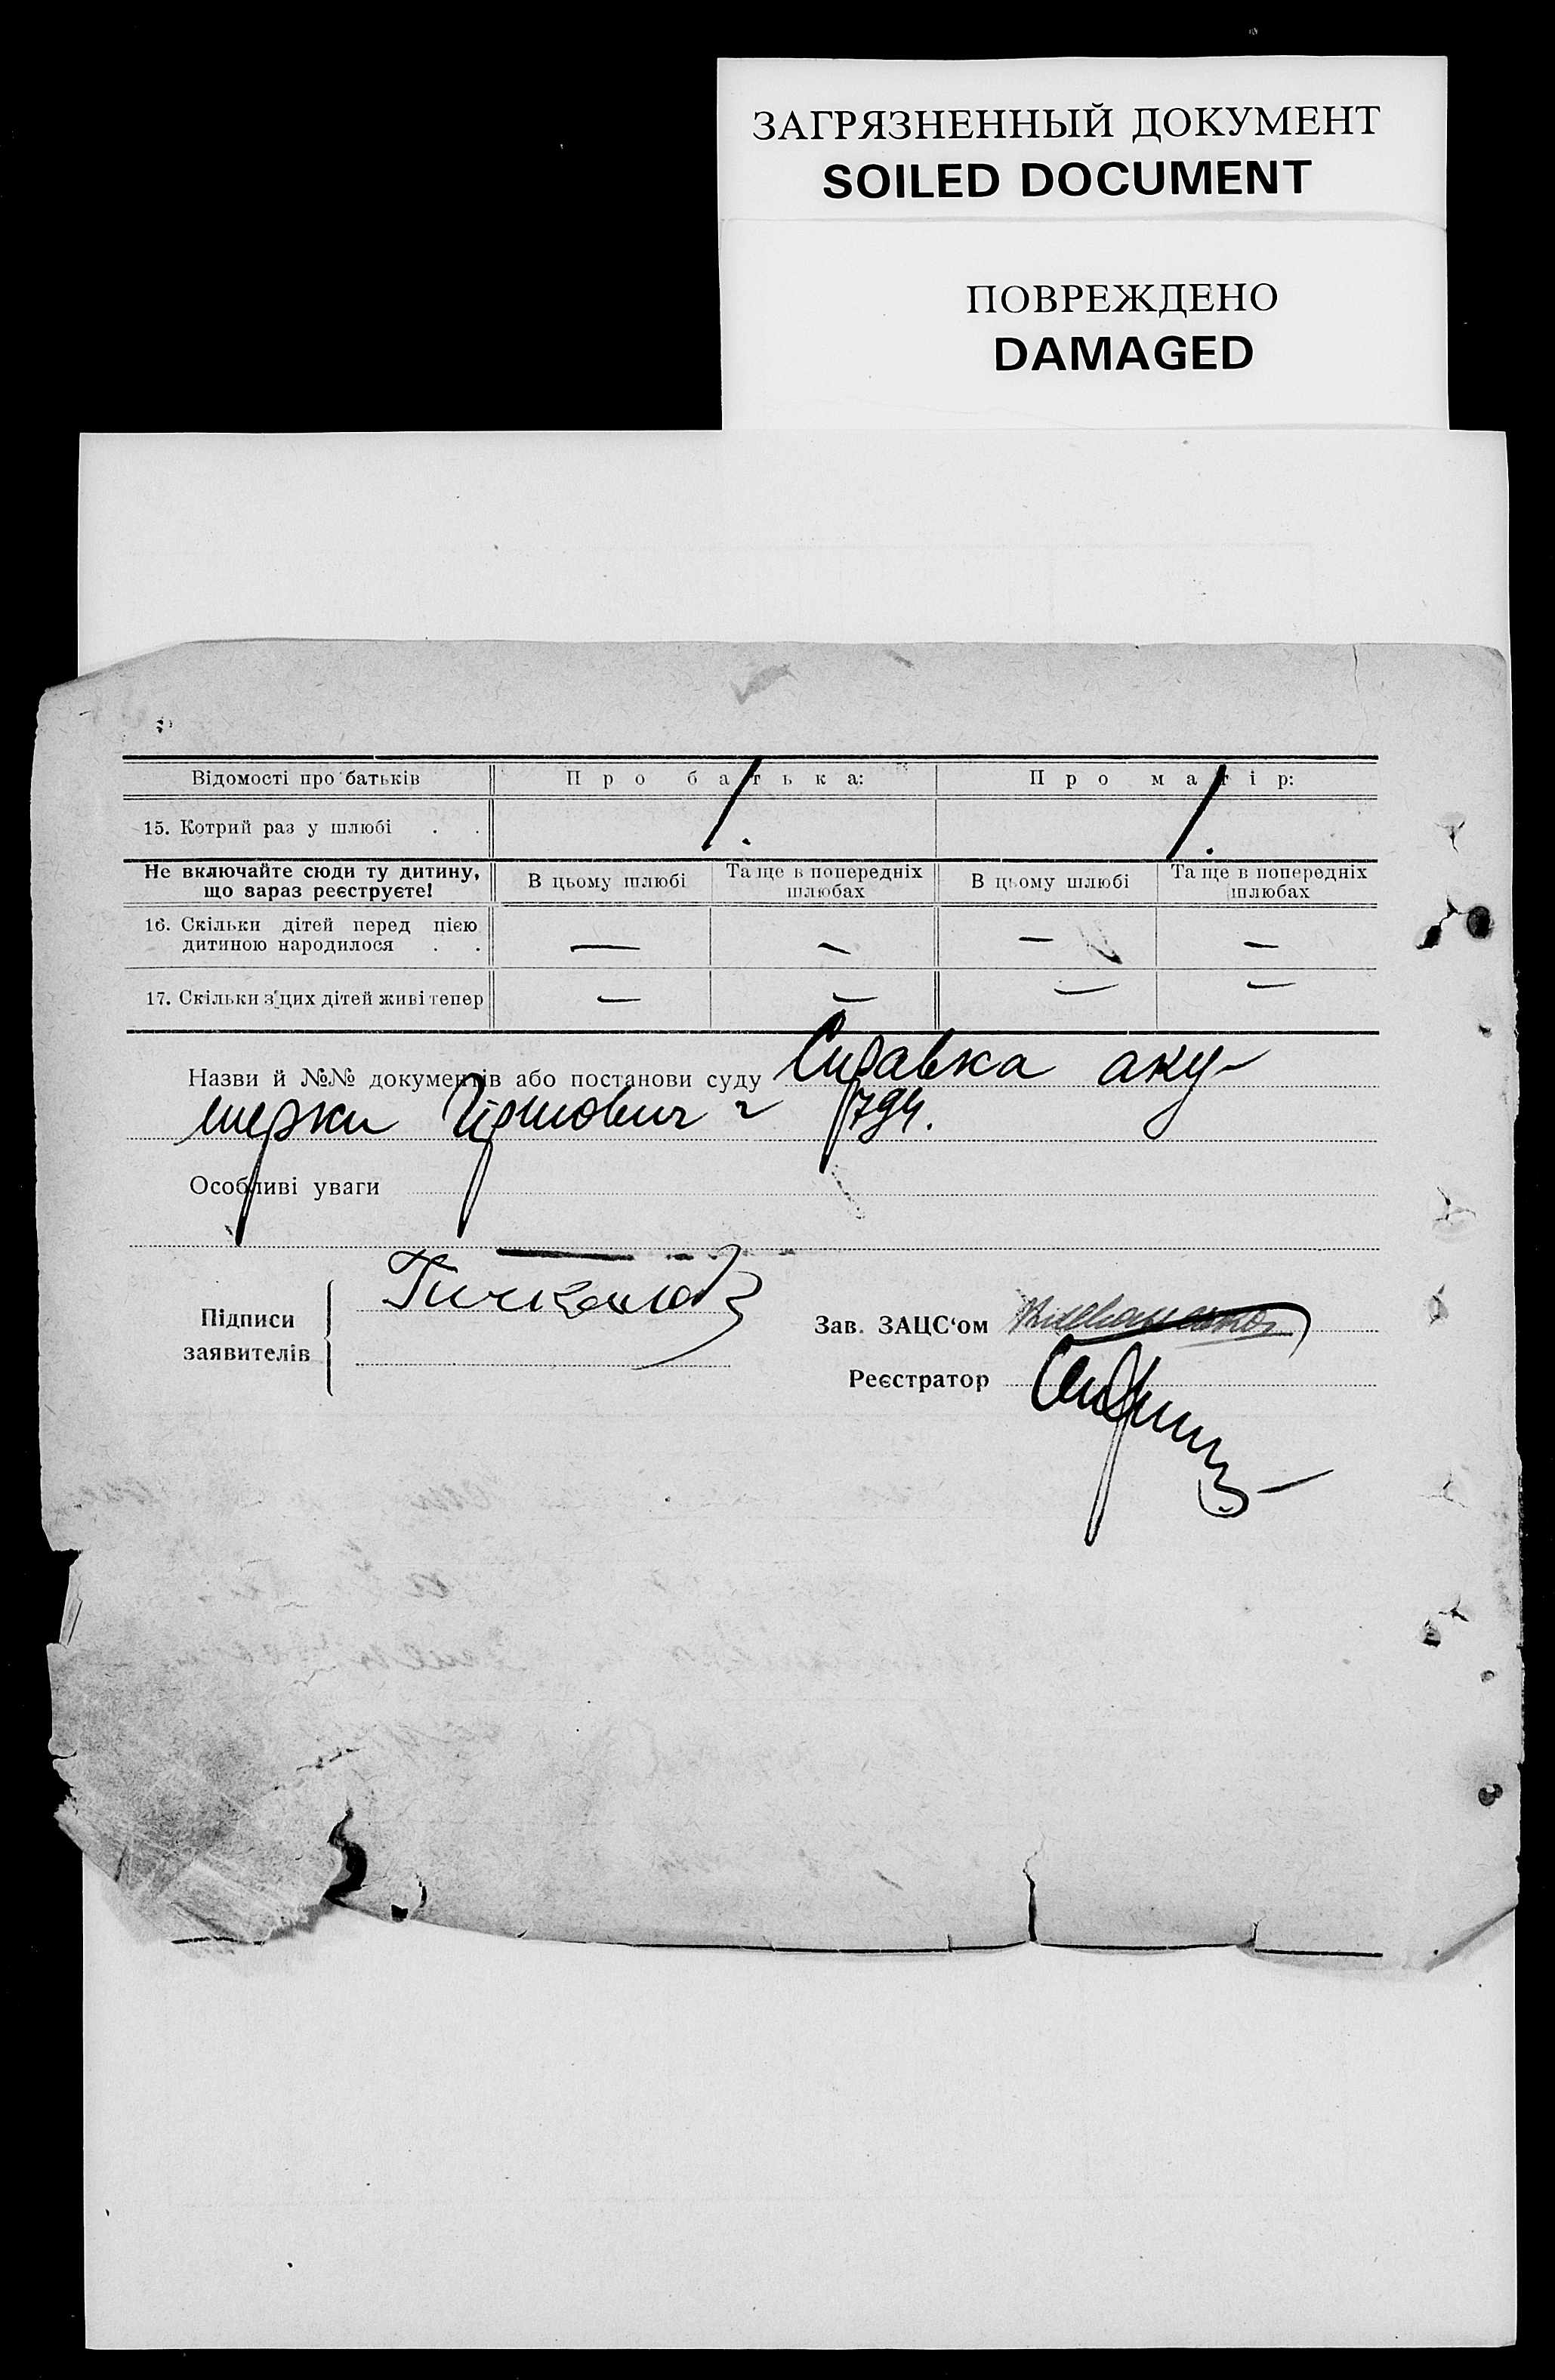 ЗАГРЯЗНЕННЫЙ ДОКУМЕНТ
SOILED DOCUMENT
ПОВРЕЖДЕНО
DAMAGED
Відомості про батьків Про батька: Про матір:
15. Котрий раз у шлюбі . . 1. 1.
Не включайте сюди ту дитину, що зараз реєструєте! В цьому шлюбі Та ще в попередніх шлюбах В цьому шлюбі Та ще в попередніх шлюбах
16. Скільки дітей перед цією
дитиною народилося . . — — — —
17. Скільки з цих дітей живі тепер — — — —
Назви й №№ документів або постанови суду Справка аку-
шерки
Особливі уваги
Підписи
заявителів
Зав. ЗАЦС‘ом
Реєстратор